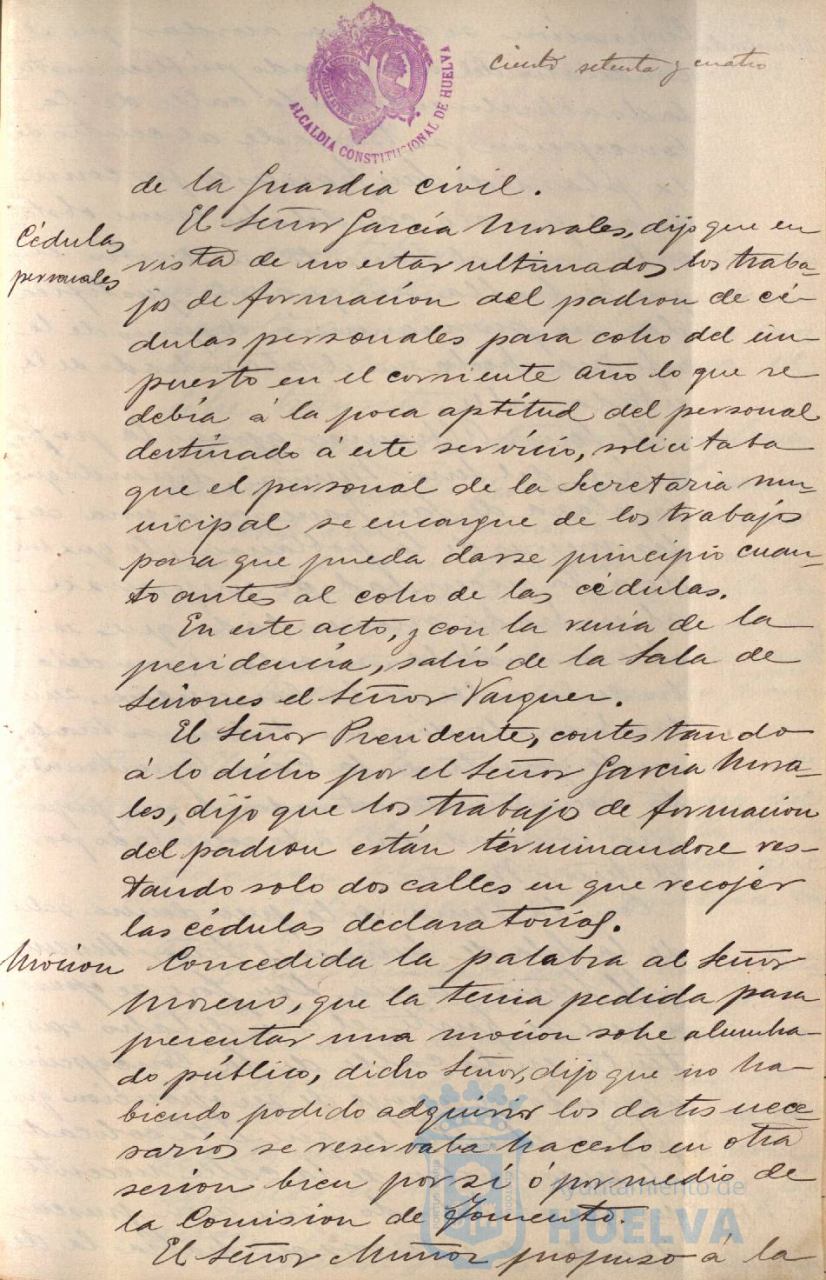 ciento setenta y cuatro
ALCALDIA CONSTITUCIONAL DE HUELVA
de la Guardia civil.
Cédulas
personales
El Señor García Morales, dijo que en
vista de no estar ultimados los traba-
jos de formación del padron de cé-
dulas personales para cobro del im-
puesto en el corriente año lo que se
debía á la poca aptitud del personal
destinado á este servicio, solicitaba
que el personal de la Secretaria mu-
nicipal se encargue de los trabajos
para que pueda darse principio cuan-
to antes al cobro de las cédulas.
En este acto, y con la venia de la
presidencia, salió de la Sala de
Sesiones el Señor Vazquez.
El Señor Presidente, contestando
á lo dicho por el Señor García Mora-
les, dijo que los trabajos de formacion
del padron están términandose res-
tando solo dos calles en que recojer
las cédulas declaratorias.
Mocion
Concedida la palabra al Señor
Moreno, que la tenia pedida para
presentar una mocion sobre alumbra-
do público, dicho Señor, dijo que no ha-
biendo podido adquirir los datos nece-
sarios se reservaba hacerlo en otra
sesion bien por sí ó por medio de
la Comision de Fomento.
El Señor Muñoz propuso á la
Ayuntamiento de
HUELVA